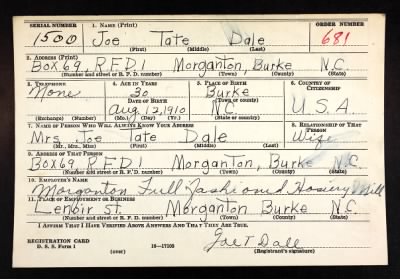 SERIAL NUMBER 1. NAME (Print) ORDER NUMBER
1500 Joe Tate Dale 681
(First) (Middle) (Last)
2. ADDRESS (Print)
Box 69, R.F.D. 1 Morganton, Burke N.C.
(Number and street or R. F. D. number) (Town) (County) (State)
3. TELEPHONE 4. AGE IN YEARS 5. PLACE OF BIRTH 6. COUNTRY OF CITIZENSHIP
None 30 Burke
DATE OF BIRTH (Town or county)
Aug 12, 1910 N.C. U.S.A.
(Exchange) (Number) (Mo.) (Day) (Yr.) (State or country)
7. NAME OF PERSON WHO WILL ALWAYS KNOW YOUR ADDRESS 8. RELATIONSHIP OF THAT PERSON
Mrs. Joe Tate Dale Wife
(Mr., Mrs., Miss) (First) (Middle) (Last)
9. ADDRESS OF THAT PERSON
Box 69 R.F.D. 1 Morganton, Burke N.C.
(Number and street or R. F. D. number) (Town) (County) (State)
10. EMPLOYER'S NAME
Morganton Full Fashioned Hosiery Mill
11. PLACE OF EMPLOYMENT OR BUSINESS
Lenoir St. Morganton Burke N.C.
(Number and street or R. F. D. number) (Town) (County) (State)
I AFFIRM THAT I HAVE VERIFIED ABOVE ANSWERS AND THAT THEY ARE TRUE.
REGISTRATION CARD
D. S. S. Form 1 (over) 16-17105 Joe T Dale
(Registrant's signature)